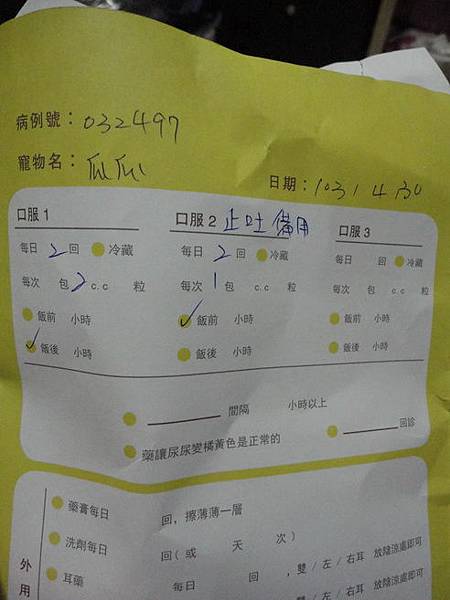 病例號：032497
寵物名：瓜瓜
日期：103/4/30
口服 1
每日 2 回 冷藏
每次 包 2 c.c 粒
飯前 小時
✓ 飯後 小時
口服 2 止吐 備用
每日 2 回 冷藏
每次 1 包 c.c 粒
✓ 飯前 小時
飯後 小時
口服 3
每日 回 冷藏
每次 包 c.c 粒
飯前 小時
飯後 小時
間隔 小時以上
藥讓尿尿變橘黃色是正常的
回診
外用
藥膏每日 回，擦薄薄一層
洗劑每日 回(或 天 次)
耳藥 每日 回，雙/左/右耳 放陰涼處即可
雙/左/右耳 放陰涼處即可